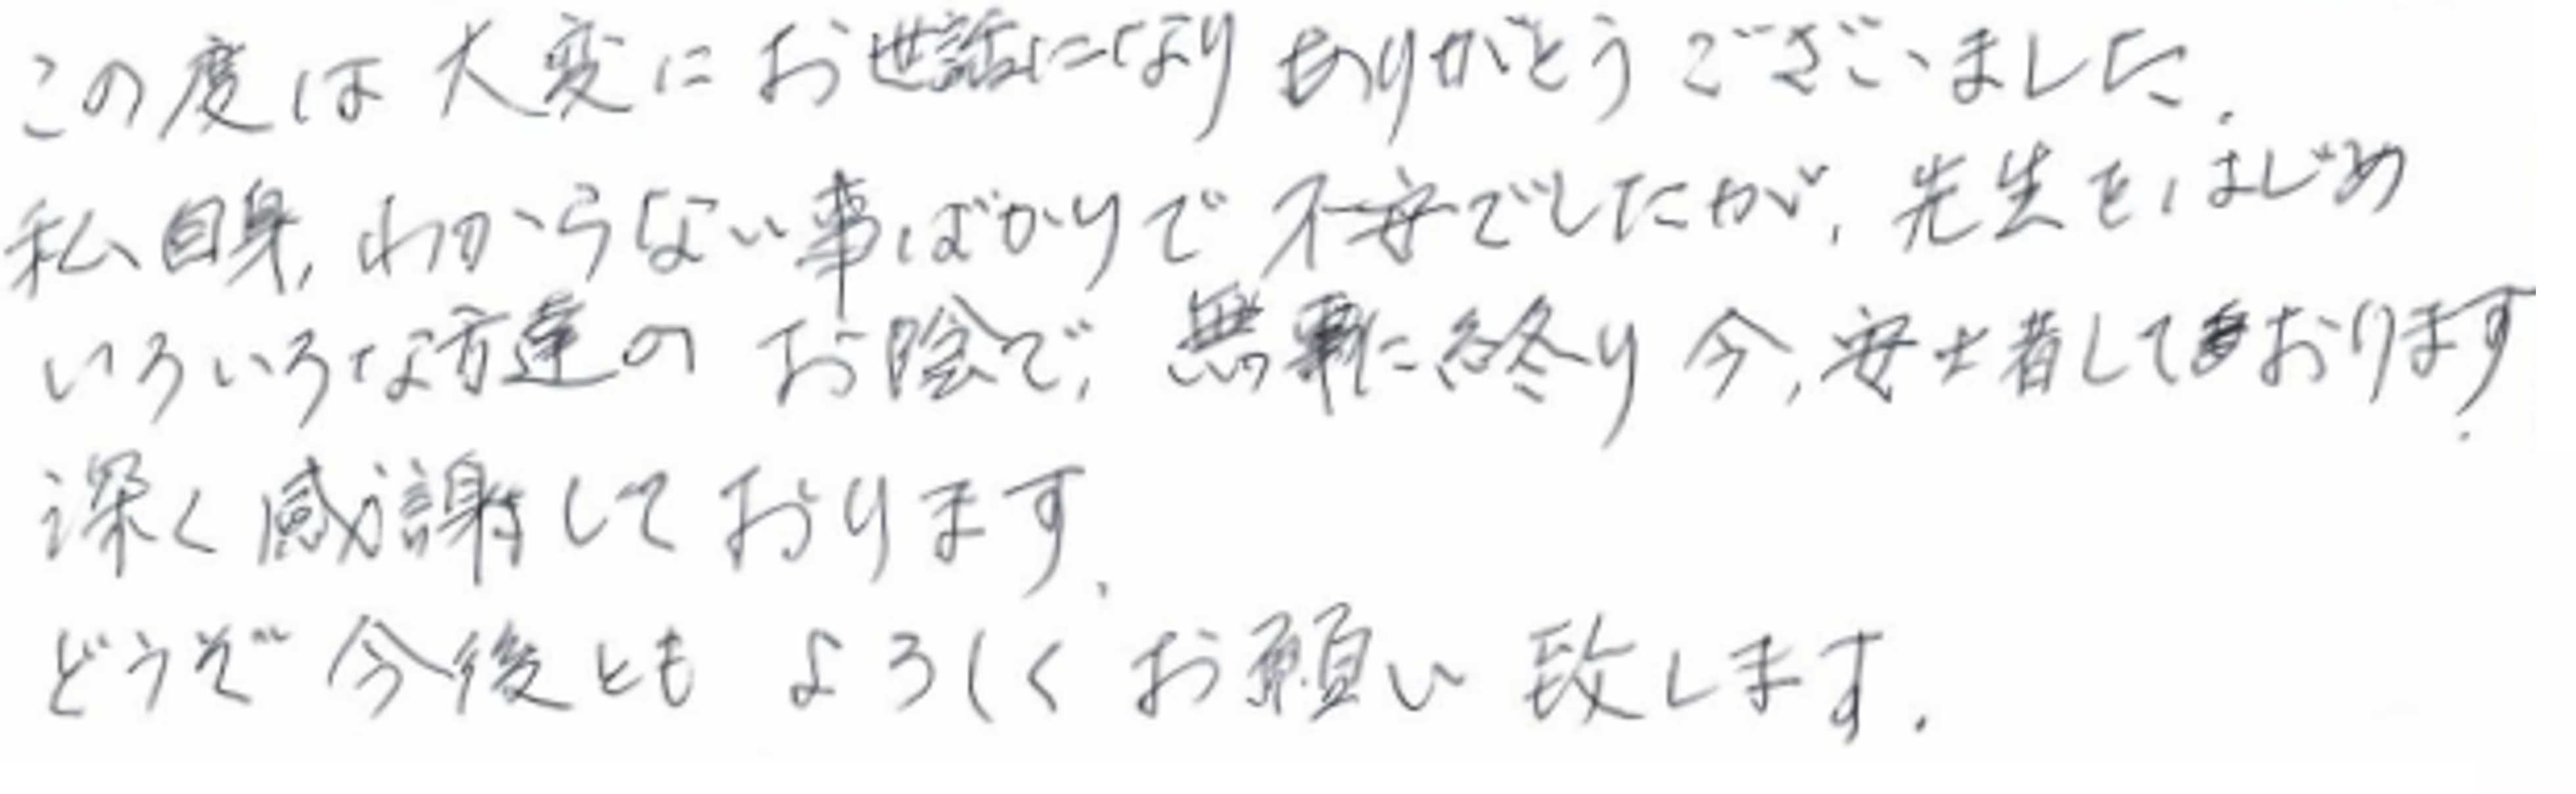 この度は大変にお世話になりありがとうございました.
私自身,わからない事ばかりで不安でしたが,先生をはじめ
いろいろな方達のお陰で,無事に終り今,安士者しております.
深く感謝しております.
どうぞ今後ともよろしくお願い致します.